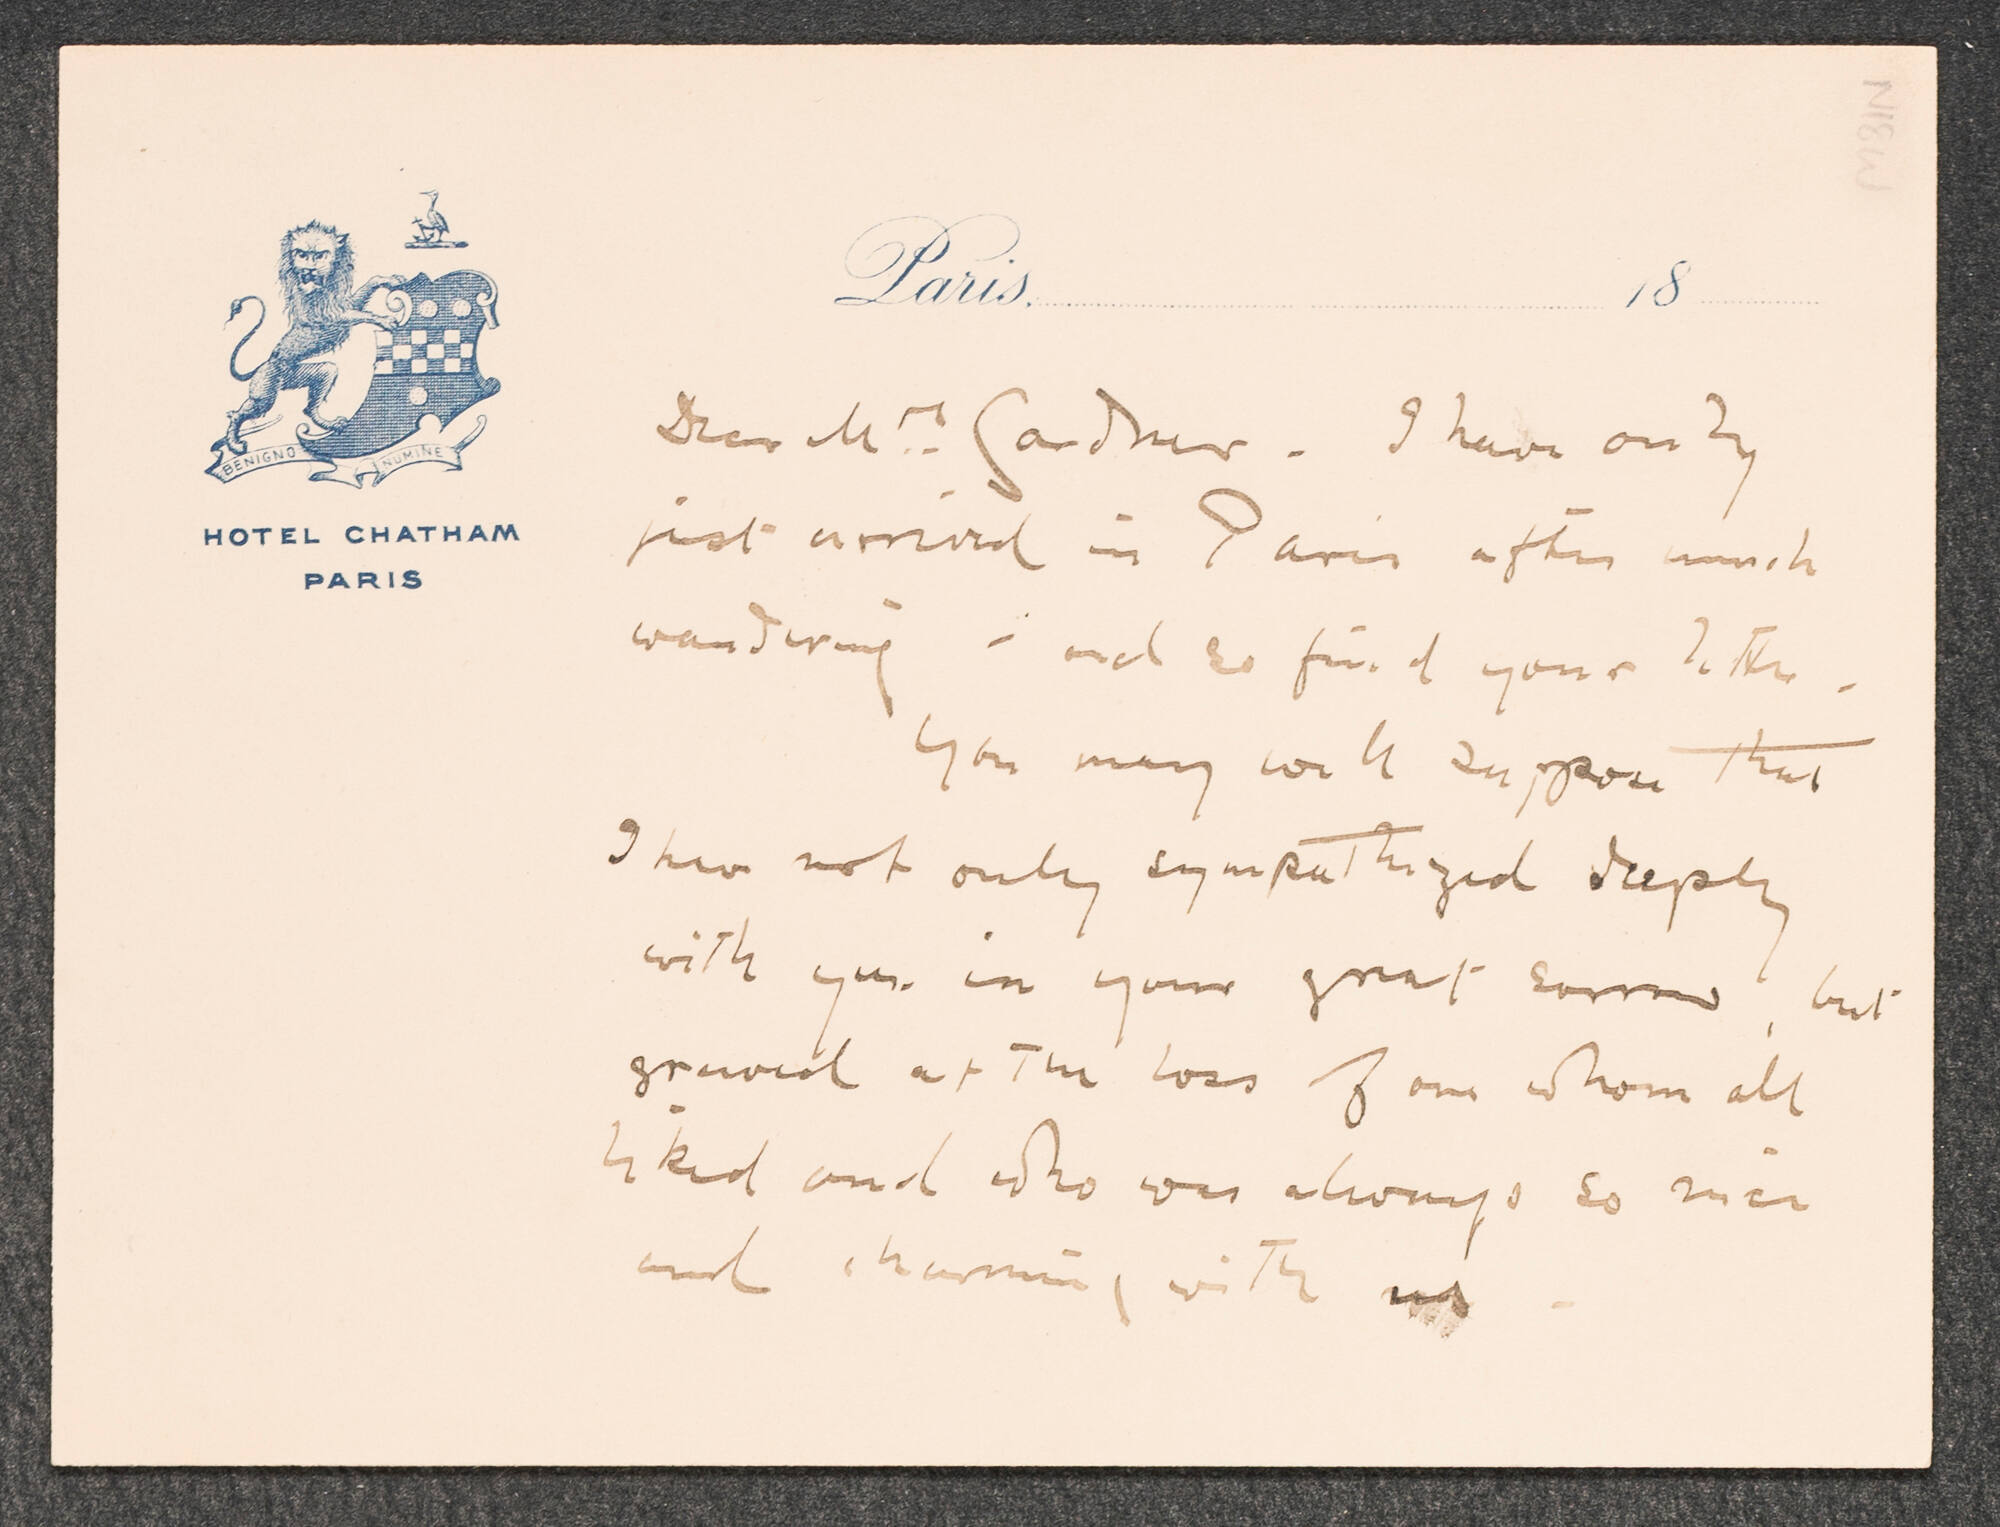 BENIGNO NUMINE
HOTEL CHATHAM
PARIS
Paris. 18
Dear Mrs. Gardner. I have only
just arrived in Paris after much
wandering - and so find your letter.
You may well suppose that
I have not only sympathized deeply
with you in your great sorrow, but
grieved at the loss of one whom all
liked and who was always so nice
and charming with us -